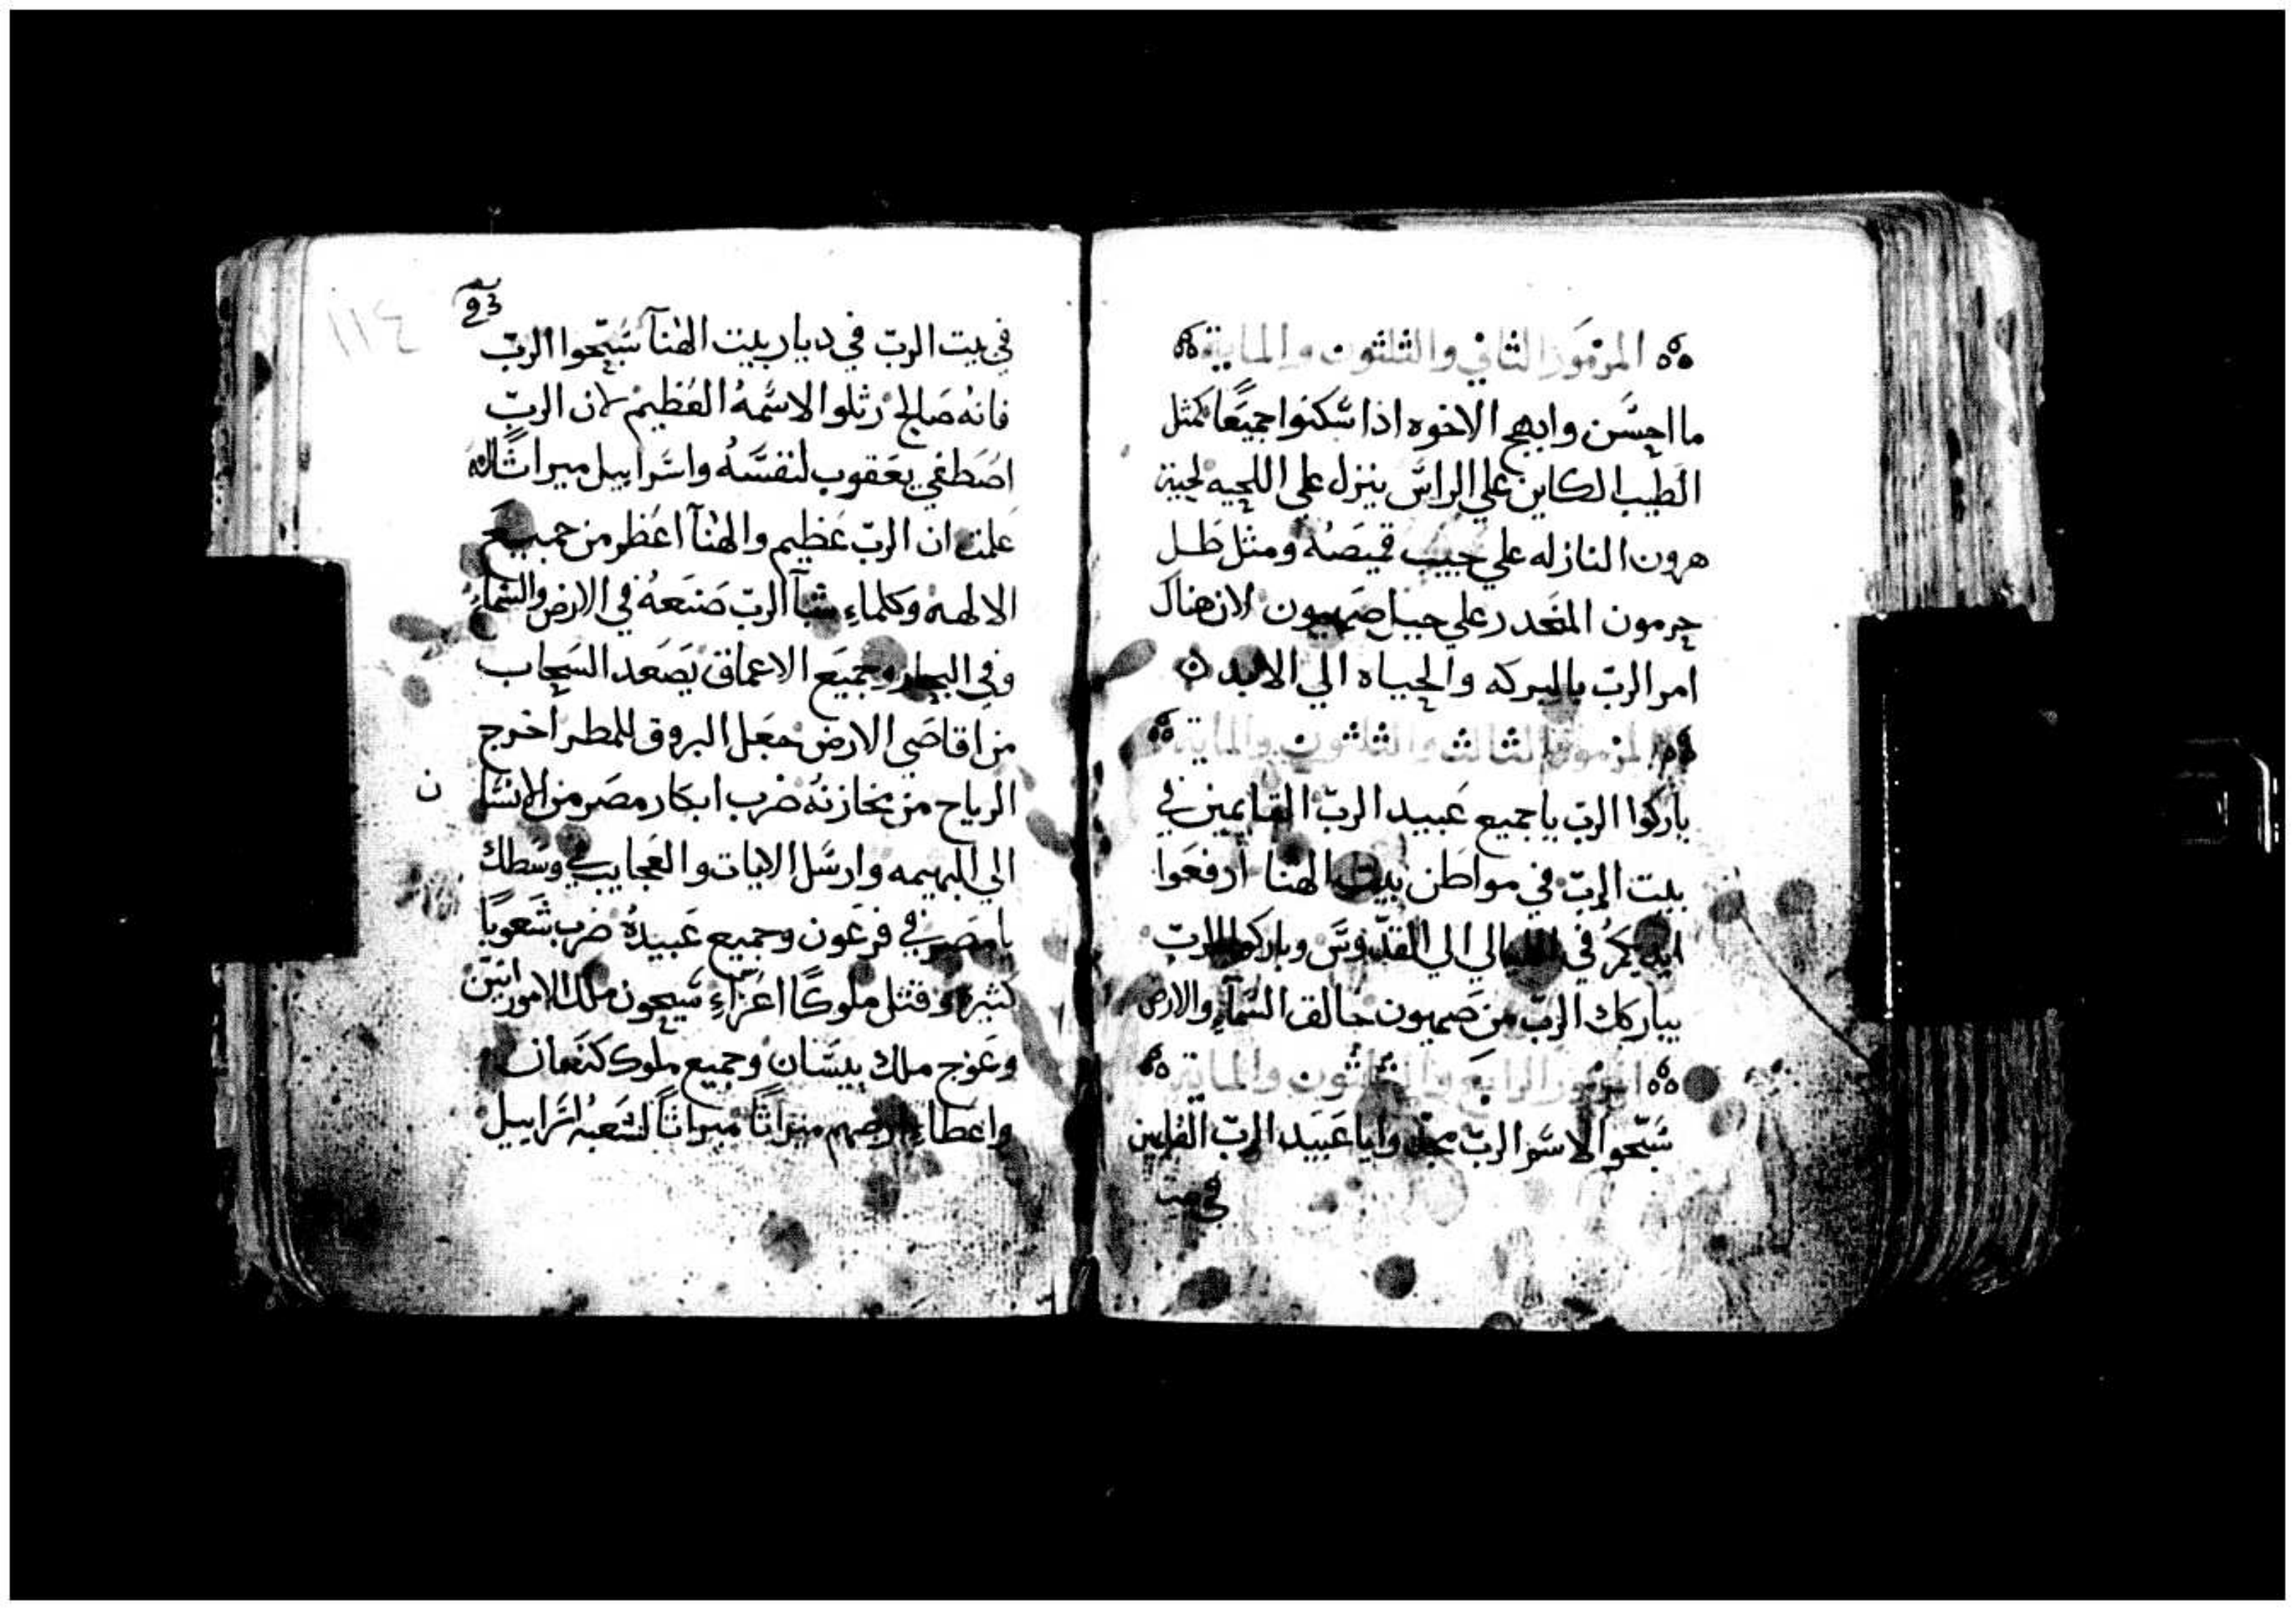 المزمور الثاني والثلثون والماية
ما احسن وابهج الاخوه اذا سكنوا جميعًا كمثل
الطيب الكاين علي الراس ينزل علي اللحيه لحية
هرون النازله علي جيب قميصه ومثل طل
حرمون المنحدر علي جبل صهيون لان هناك
امر الربّ بالبركه والحياه الي الابد
المزمور الثالث والثلثون والماية
باركوا الربّ يا جميع عبيد الربّ القايمين في
بيت الربّ في مواطن بيت الهنا ارفعوا
ايديكم في الليالي الي القدّوس وباركوا الربّ
يباركك الربّ من صهيون خالق السمآء والارض
المزمور الرابع والثلثون والماية
سبّحوا لاسم الربّ مجّدوا يا عبيد الربّ القايمين
في بيت
١١٤
في بيت الربّ في ديار بيت الهنآ سبّحوا الربّ
فانه صالح رتلوا لاسمه العظيم لان الربّ
اصطفي يعقوب لنفسه واسراييل ميراثًا له
علمت ان الربّ عظيم والهنآ اعظم من جميع
الالهه وكلماء شآ الربّ صنعه في الارض والسماء
وفي البحار وجميع الاعماق يصعد السحاب
من اقاصي الارض جعل البروق للمطر اخرج
الرياح من مخازنه ضرب ابكار مصر من الانسا ن
الي البهيمه وارسل الايات والعجايب في وسطك
يا مصر في فرعون وجميع عبيده ضرب شعوبًا
كثيره وقتل ملوكًا اعزّاء سيحون ملك الامورانيّن
وعوج ملك بيسان وجميع ملوك كنعان
واعطاء ارضهم ميراثًا ميراثًا لشعبه اسراييل